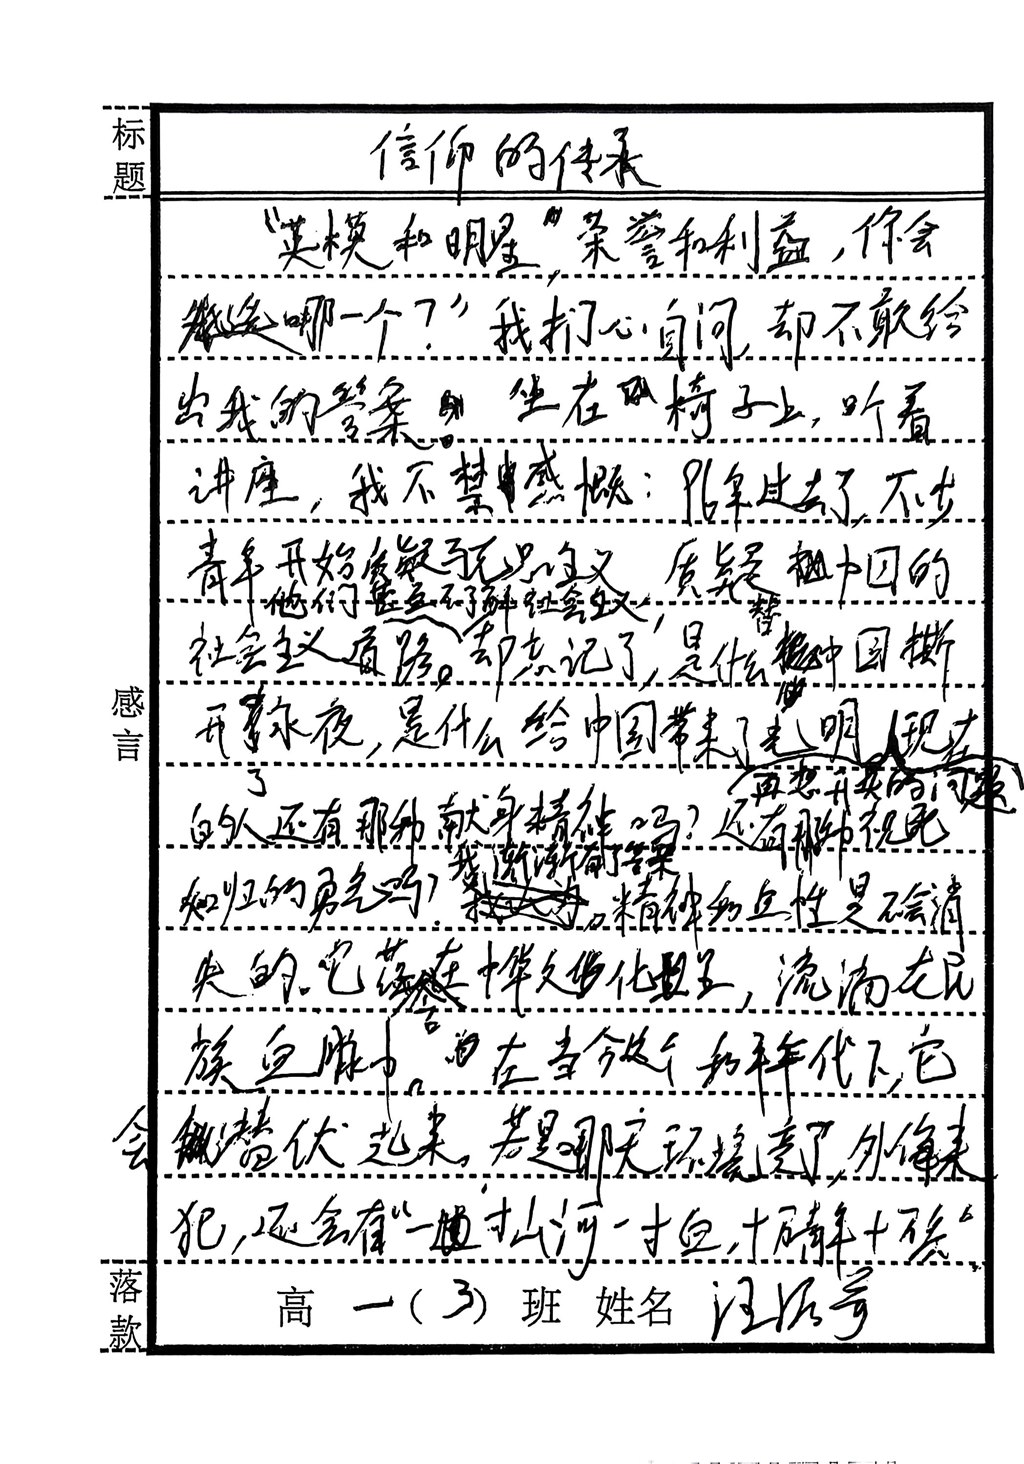 标题
信仰的传承
“英模和明星”,荣誉和利益，你会
哪一个？”我扪心自问，却不敢给
出我的答案。坐在椅子上，听着
讲座，我不禁感慨：96年过去了，不少
青年开始质疑马克思主义，质疑中国的
他们不了解社会主义，
社会主义道路。却忘记了，是什么替中国撕
开了永夜，是什么给中国带来了光明，现在
再想开头的问题
的人还有那种献身精神吗？还有那种视死
我渐渐有了答案
如归的勇气吗？精神和血性是不会消
失的。它落在中华文化里，流淌在民
族血脉中。在当今这个和平年代下，它
会潜伏起来。若是哪天环境变了，外侮来
犯，还会有“一寸山河一寸血，十万青年十万兵”。
感言
落款
高一（3）班 姓名 汪